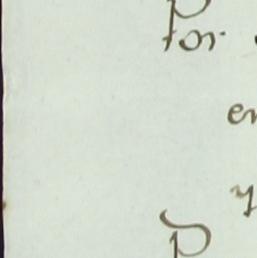 por
en
y
p